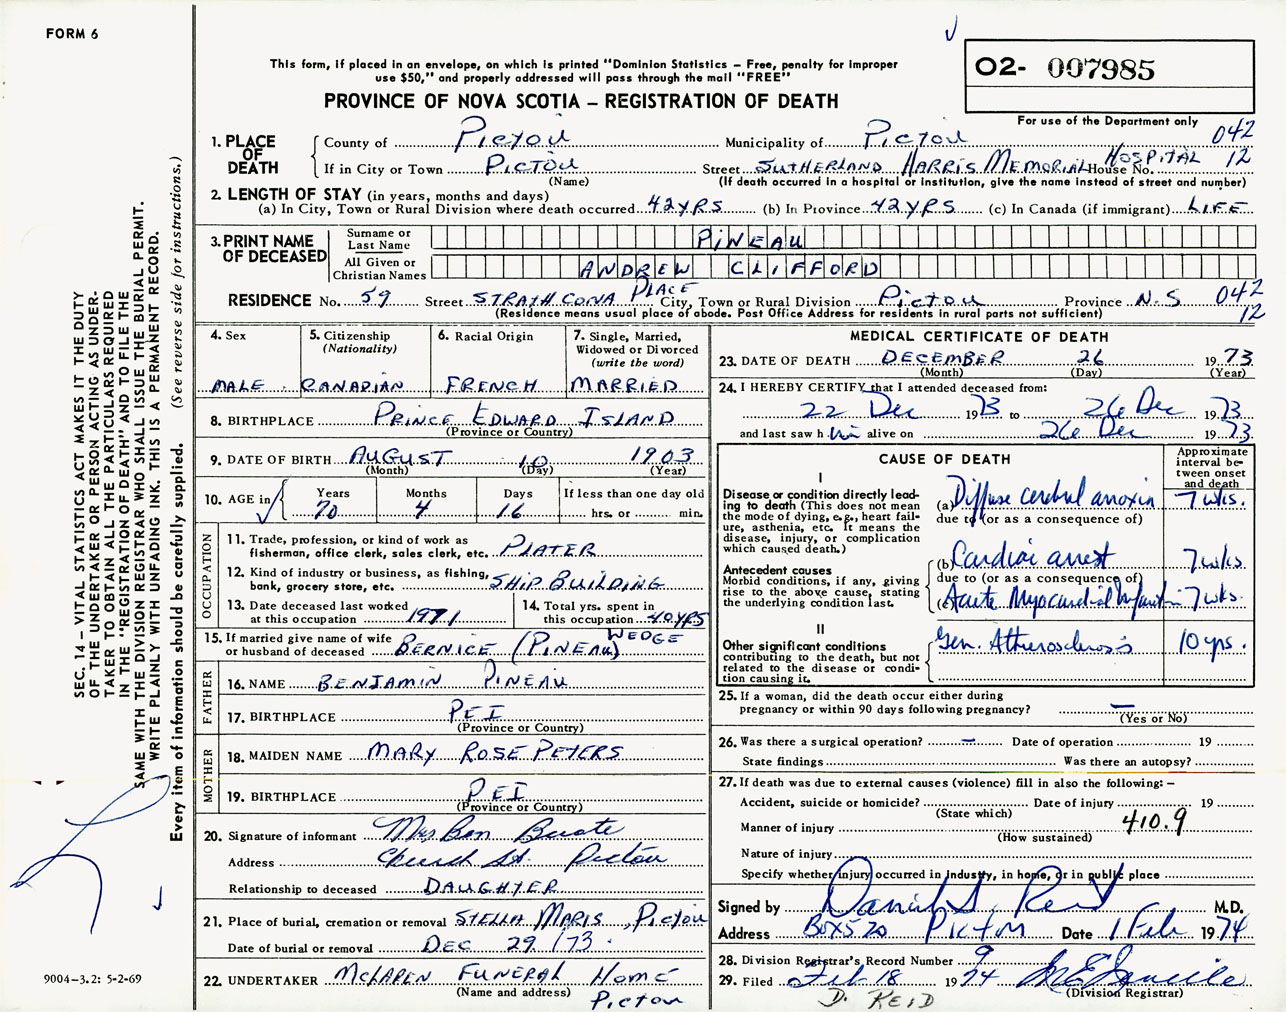 FORM 6
This form, if placed in an envelope, on which is printed "Dominion Statistics – Free, penalty for improper
use $50," and properly addressed will pass through the mail "FREE"
PROVINCE OF NOVA SCOTIA – REGISTRATION OF DEATH
O2- 007985
For use of the Department only
042
12
1. PLACE OF DEATH
County of Pictou Municipality of Pictou
If in City or Town Pictou Street Sutherland Harris Memorial House No. Hospital
(Name) (If death occurred in a hospital or institution, give the name instead of street and number)
2. LENGTH OF STAY (in years, months and days)
(a) In City, Town or Rural Division where death occurred 42 YRS (b) In Province 42 YRS (c) In Canada (if immigrant) LIFE
3. PRINT NAME OF DECEASED
Surname or Last Name PINEAU
All Given or Christian Names ANDREW CLIFFORD
RESIDENCE No. 59 Street STRATHCONA PLACE City, Town or Rural Division Pictou Province N.S 042
12
(Residence means usual place of abode. Post Office Address for residents in rural parts not sufficient)
4. Sex
MALE
5. Citizenship
(Nationality)
CANADIAN
6. Racial Origin
FRENCH
7. Single, Married,
Widowed or Divorced
(write the word)
MARRIED
8. BIRTHPLACE PRINCE EDWARD ISLAND
(Province or Country)
9. DATE OF BIRTH AUGUST 10 1903
(Month) (Day) (Year)
10. AGE in
Years Months Days If less than one day old
70 4 16 hrs. or min.
OCCUPATION
11. Trade, profession, or kind of work as
fisherman, office clerk, sales clerk, etc. PLATER
12. Kind of industry or business, as fishing,
bank, grocery store, etc. SHIP BUILDING
13. Date deceased last worked
at this occupation 1971
14. Total yrs. spent in
this occupation 40 YRS
15. If married give name of wife
or husband of deceased BERNICE (PINEAU) WEDGE
FATHER
16. NAME BENJAMIN PINEAU
17. BIRTHPLACE PEI
(Province or Country)
MOTHER
18. MAIDEN NAME MARY ROSE PETERS
19. BIRTHPLACE PEI
(Province or Country)
20. Signature of informant Mrs Ben Buote
Address Church St. Pictou
Relationship to deceased DAUGHTER
21. Place of burial, cremation or removal STELLA MARIS, Pictou
Date of burial or removal DEC 29 /73.
22. UNDERTAKER McLAREN FUNERAL HOME
(Name and address)
Pictou
MEDICAL CERTIFICATE OF DEATH
23. DATE OF DEATH DECEMBER 26 1973
(Month) (Day) (Year)
24. I HEREBY CERTIFY that I attended deceased from:
22 Dec 1973 to 26 Dec 1973
and last saw him alive on 26 Dec 1973
CAUSE OF DEATH
Approximate
interval be-
tween onset
and death
I
Disease or condition directly lead-
ing to death (This does not mean
the mode of dying, e.g., heart fail-
ure, asthenia, etc. It means the
disease, injury, or complication
which caused death.)
(a) Diffuse cerebral anoxia 7 wks.
due to (or as a consequence of)
Antecedent causes
Morbid conditions, if any, giving
rise to the above cause, stating
the underlying condition last.
(b) Cardiac arrest 7 wks
due to (or as a consequence of)
(c) Acute Myocardial Infarct 7 wks.
II
Other significant conditions
contributing to the death, but not
related to the disease or condi-
tion causing it.
Gen. Atherosclerosis 10 yrs.
25. If a woman, did the death occur either during
pregnancy or within 90 days following pregnancy? –
(Yes or No)
26. Was there a surgical operation? – Date of operation 19
State findings Was there an autopsy?
27. If death was due to external causes (violence) fill in also the following: –
Accident, suicide or homicide? Date of injury 19
(State which)
Manner of injury 410.9
(How sustained)
Nature of injury
Specify whether injury occurred in industry, in home, or in public place
Signed by Daniel S. Reid M.D.
Address Box 520 Pictou Date 1 Feb 1974
28. Division Registrar's Record Number 9
29. Filed Feb 18 1974
(Division Registrar)
D. REID
SEC. 14 – VITAL STATISTICS ACT MAKES IT THE DUTY
OF THE UNDERTAKER OR PERSON ACTING AS UNDER-
TAKER TO OBTAIN ALL THE PARTICULARS REQUIRED
IN THE "REGISTRATION OF DEATH" AND TO FILE THE
SAME WITH THE DIVISION REGISTRAR WHO SHALL ISSUE THE BURIAL PERMIT.
WRITE PLAINLY WITH UNFADING INK. THIS IS A PERMANENT RECORD.
Every item of information should be carefully supplied. (See reverse side for instructions.)
9004–3.2: 5-2-69